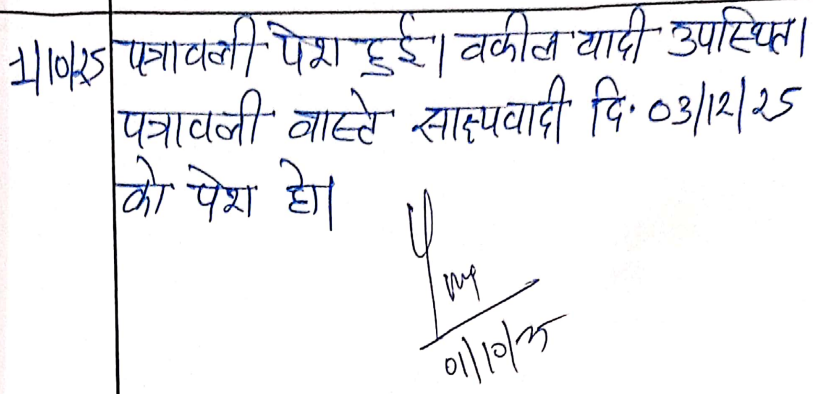 1/10/25 पत्रावली पेश हुई। वकील वादी उपस्थित।
पत्रावली वास्ते साक्ष्यवादी दि. 03/12/25
को पेश हो।
01/10/25